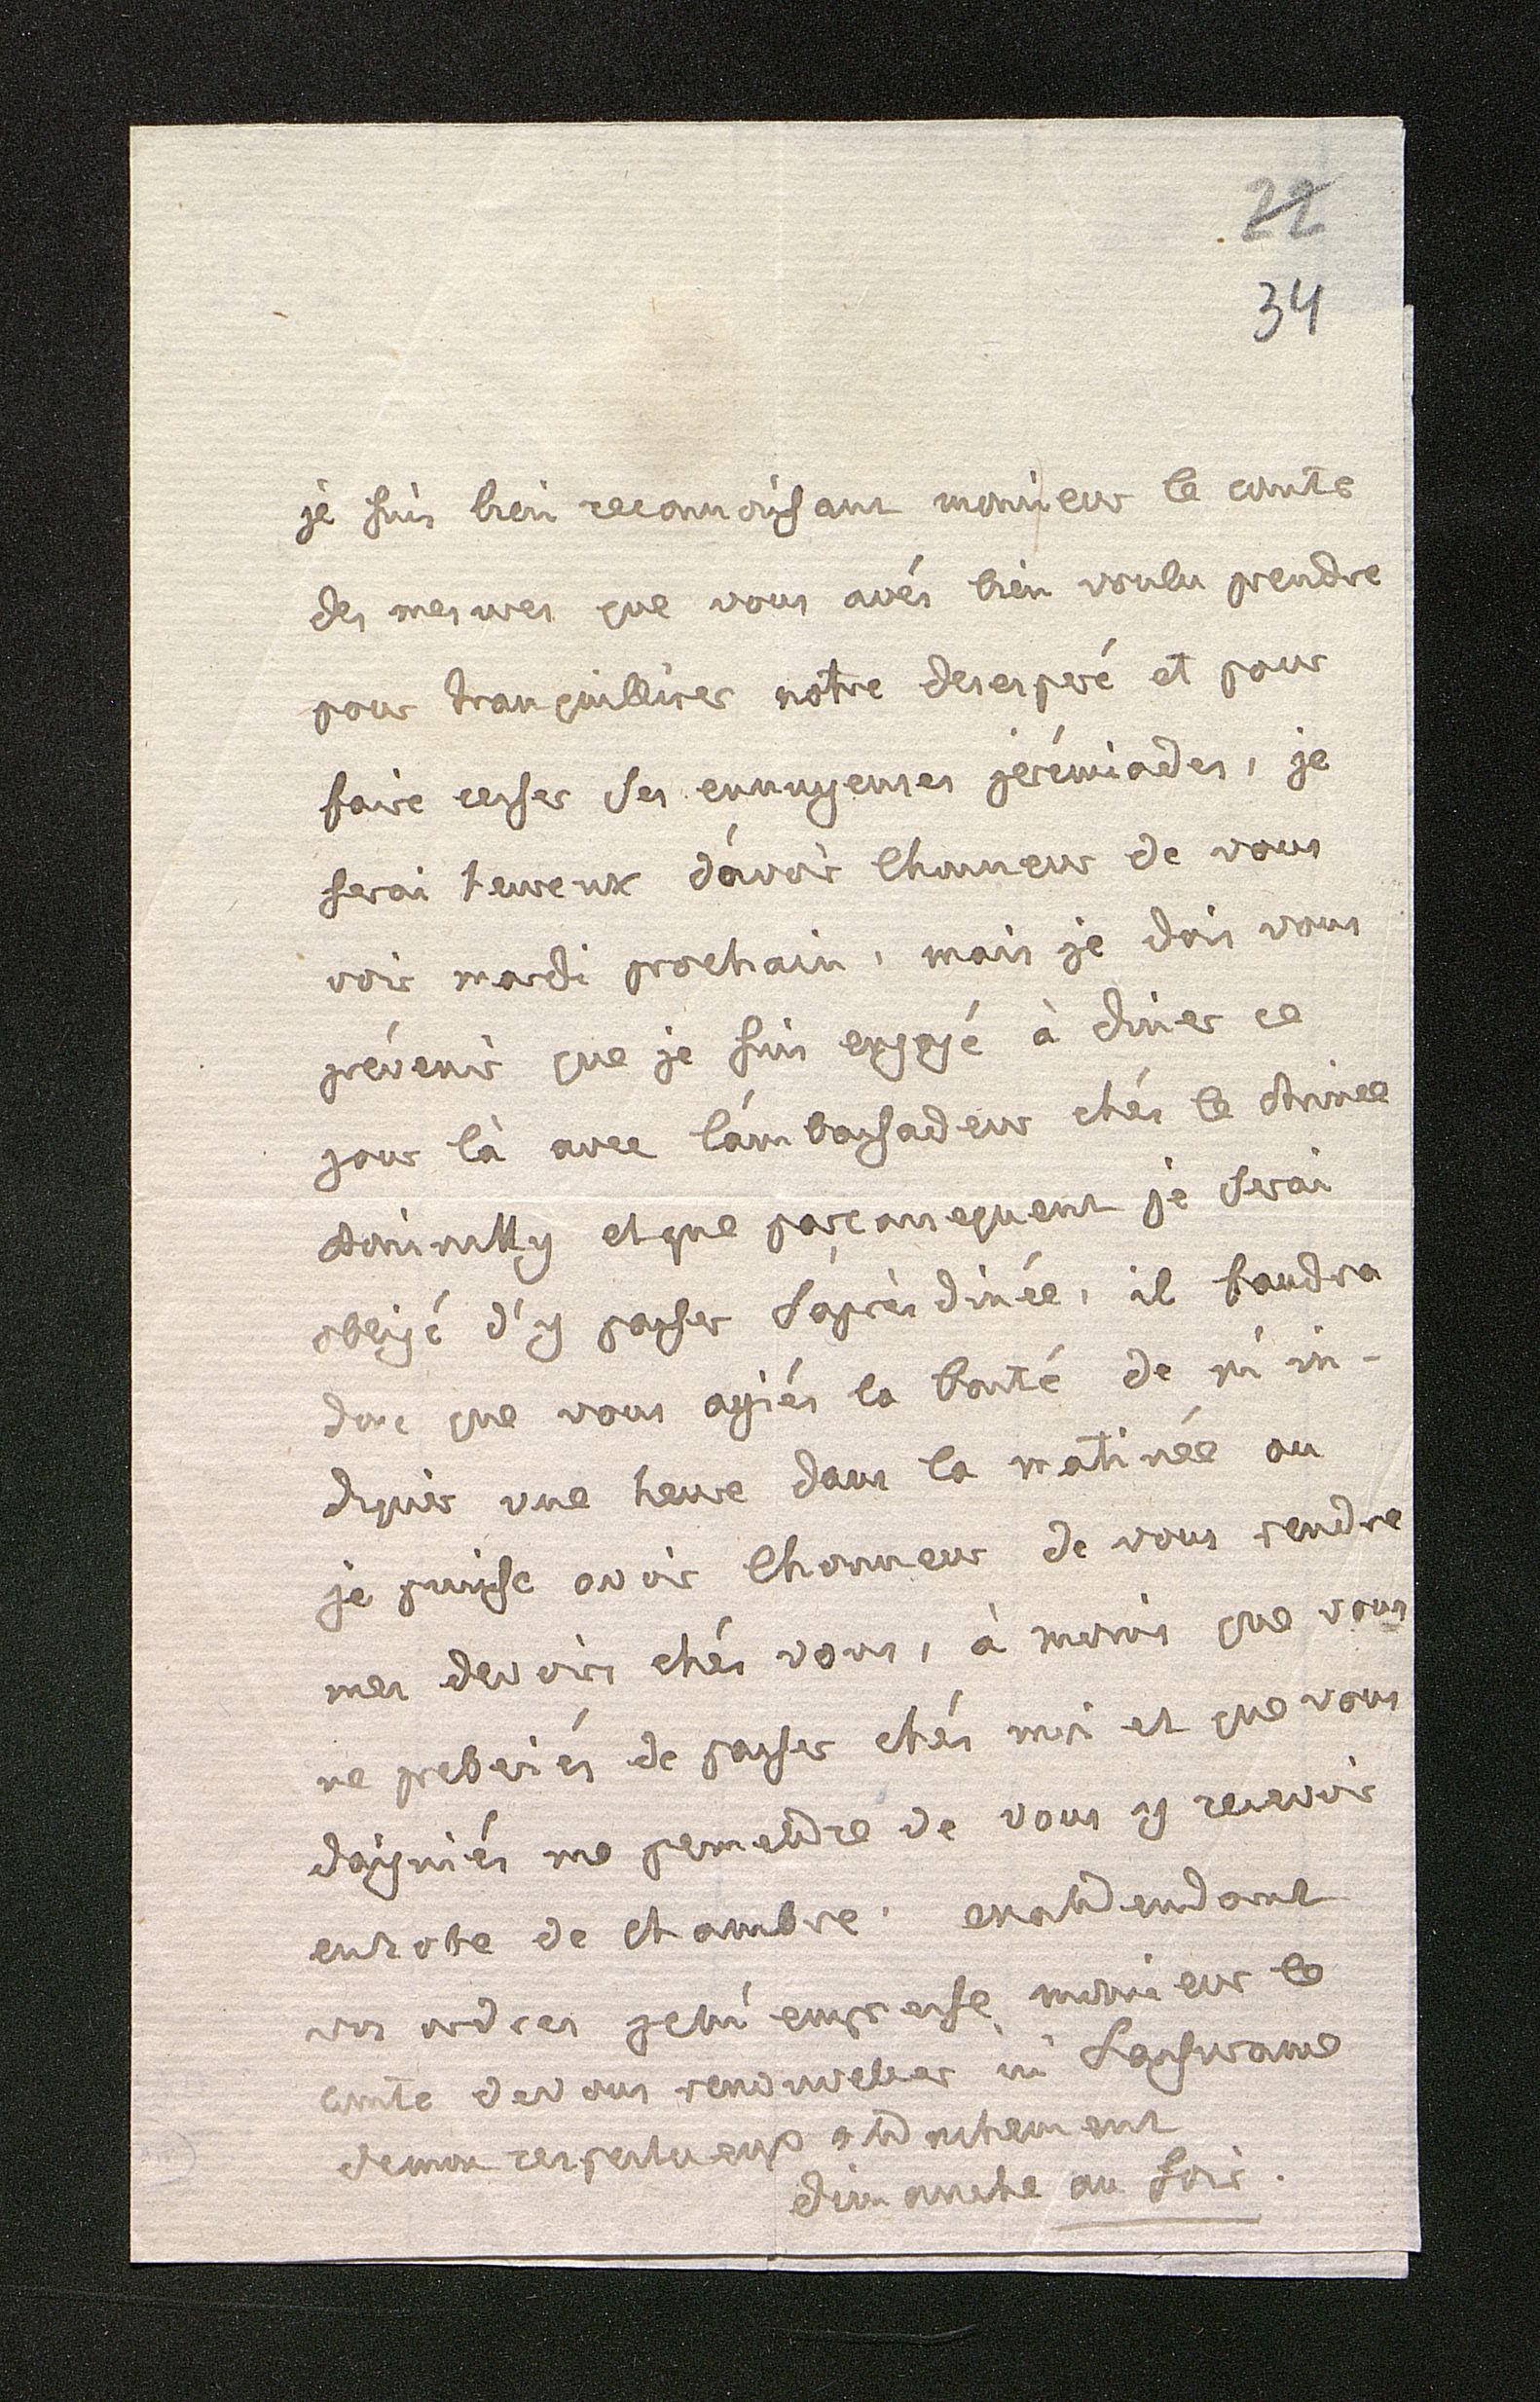 22
34
je suis bien reconnoissant monsieur le comte
des mesures que vous avés bien voulu prendre
pour tranquilliser notre desesperé et pour
faire cesser ses ennuyeuses jérémiades, je
serai heureux d'avoir l'honneur de vous
voir mardi prochain, mais je dois vous
prévenir que je suis engagé à diner ce
jour là avec l'ambassadeur chés le prince
et que parconsequent je serai
obligé d'y passer l'après dinée, il faudra
donc que vous ayiés la bonté de m'in-
diquer une heure dans la matinée ou
je puisse avoir l'honneur de vous rendre
mes devoirs chés vous, à moins que vous
ne preferiés de passer chés moi et que vous
daigniés me permettre de vous y recevoir
en robe de chambre. en attendant
vos ordres je m'empresse monsieur le
comte de vous renouveller ici l'assurance
de mon respectueux attachement
dimanche au soir.